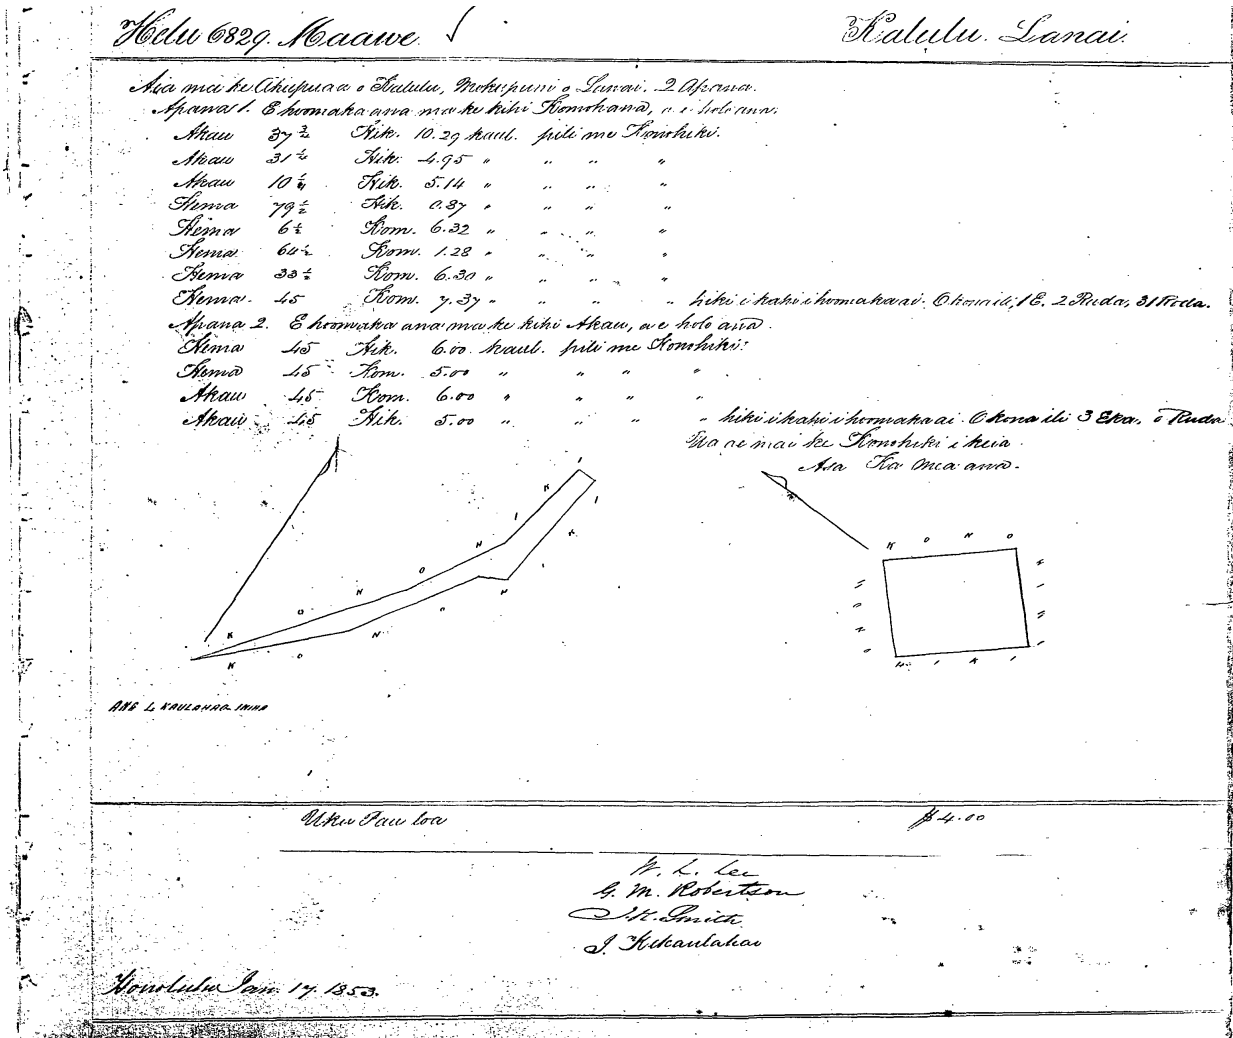 Helu 6829. Maawe. Kalulu. Lanai.
Aia ma ke Ahupuaa o Kalulu, Mokupuni o Lanai. 2 Apana.
Apana 1. E hoomaka ana ma ke kihi Komohana, a e holo ana.
Akau 37 Hik. 10.29 kaul. pili me Konohiki.
Akau 31 Hik. 4.95 " " " "
Akau 10 Hik. 5.14 " " " "
Hema 79 1/2 Hik. 0.87 " " " "
Hema 6 1/2 Kom. 6.32 " " " "
Hema 64 1/2 Kom. 1.28 " " " "
Hema 33 1/2 Kom. 6.30 " " " "
Hema 45 Kom. 7.37 " " " " hiki i kahi i hoomaka ai. O kona ili, 1 E, 2 Ruda, 31 Roda.
Apana 2. E hoomaka ana ma ke kihi Akau, a e holo ana.
Hema 45 Hik. 6.00 kaul. pili me Konohiki.
Hema 45 Kom. 5.00 " " " "
Akau 45 Kom. 6.00 " " " "
Akau 45 Hik. 5.00 " " " " hiki i kahi i hoomaka ai. O kona ili 3 Eka, 0 Ruda
Ua ae mai ke Konohiki i keia.
Asa Ka mea ana.
K O N O H I K I
K O N O H I K I
K O N O
H I K I
ANA 4 KAULAHAO INIHA
Uku Pau loa $4.00
W. L. Lee
G. M. Robertson
J. H. Smith
J. Kekaulahao
Honolulu Jan. 17. 1853.